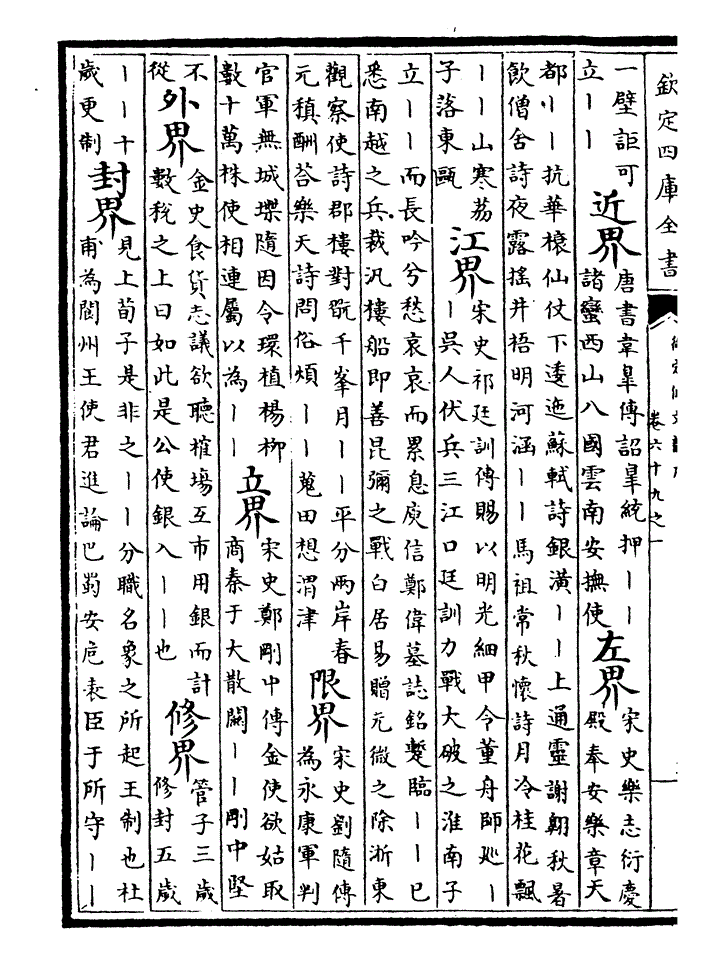 欽定四庫全書
卷六十九之一
一壁詎可
立丨丨
近界
唐書韋臯傳詔臯統押丨丨
諸蠻西山八國雲南安撫使
左界
宋史樂志衍慶
殿奉安樂章天
都丨丨抗華榱仙仗下逶迤蘇軾詩銀潢丨丨上通靈謝翺秋暑
飲僧舍詩夜露揺井梧明河涵丨丨馬祖常秋懷詩月冷桂花飄
丨丨山寒荔
子落東甌
江界
宋史祁廷訓傳賜以明光細甲令董舟師廵丨
丨吳人伏兵三江口廷訓力戰大破之淮南子
立丨丨而長吟兮愁哀哀而累息庾信鄭偉墓誌銘蹔臨丨丨已
悉南越之兵裁汎樓船即善昆彌之戰白居易贈元微之除浙東
觀察使詩郡樓對翫千峯月丨丨平分兩岸春
元稹酬荅樂天詩問俗煩丨丨蒐田想渭津
限界
宋史劉隨傳
為永康軍判
官軍無城堞隨因令環植楊柳
數十萬株使相連屬以為丨丨
立界
宋史鄭剛中傳金使欲姑取
商秦于大散關丨丨剛中堅
不
從
外界
金史食貨志議欲聽榷場互市用銀而計
數税之上曰如此是公使銀入丨丨也
修界
管子三歲
修封五歲
丨丨十
歲更制
封界
見上荀子是非之丨丨分職名象之所起王制也杜
甫為閬州王使君進論巴蜀安危表臣于所守丨丨